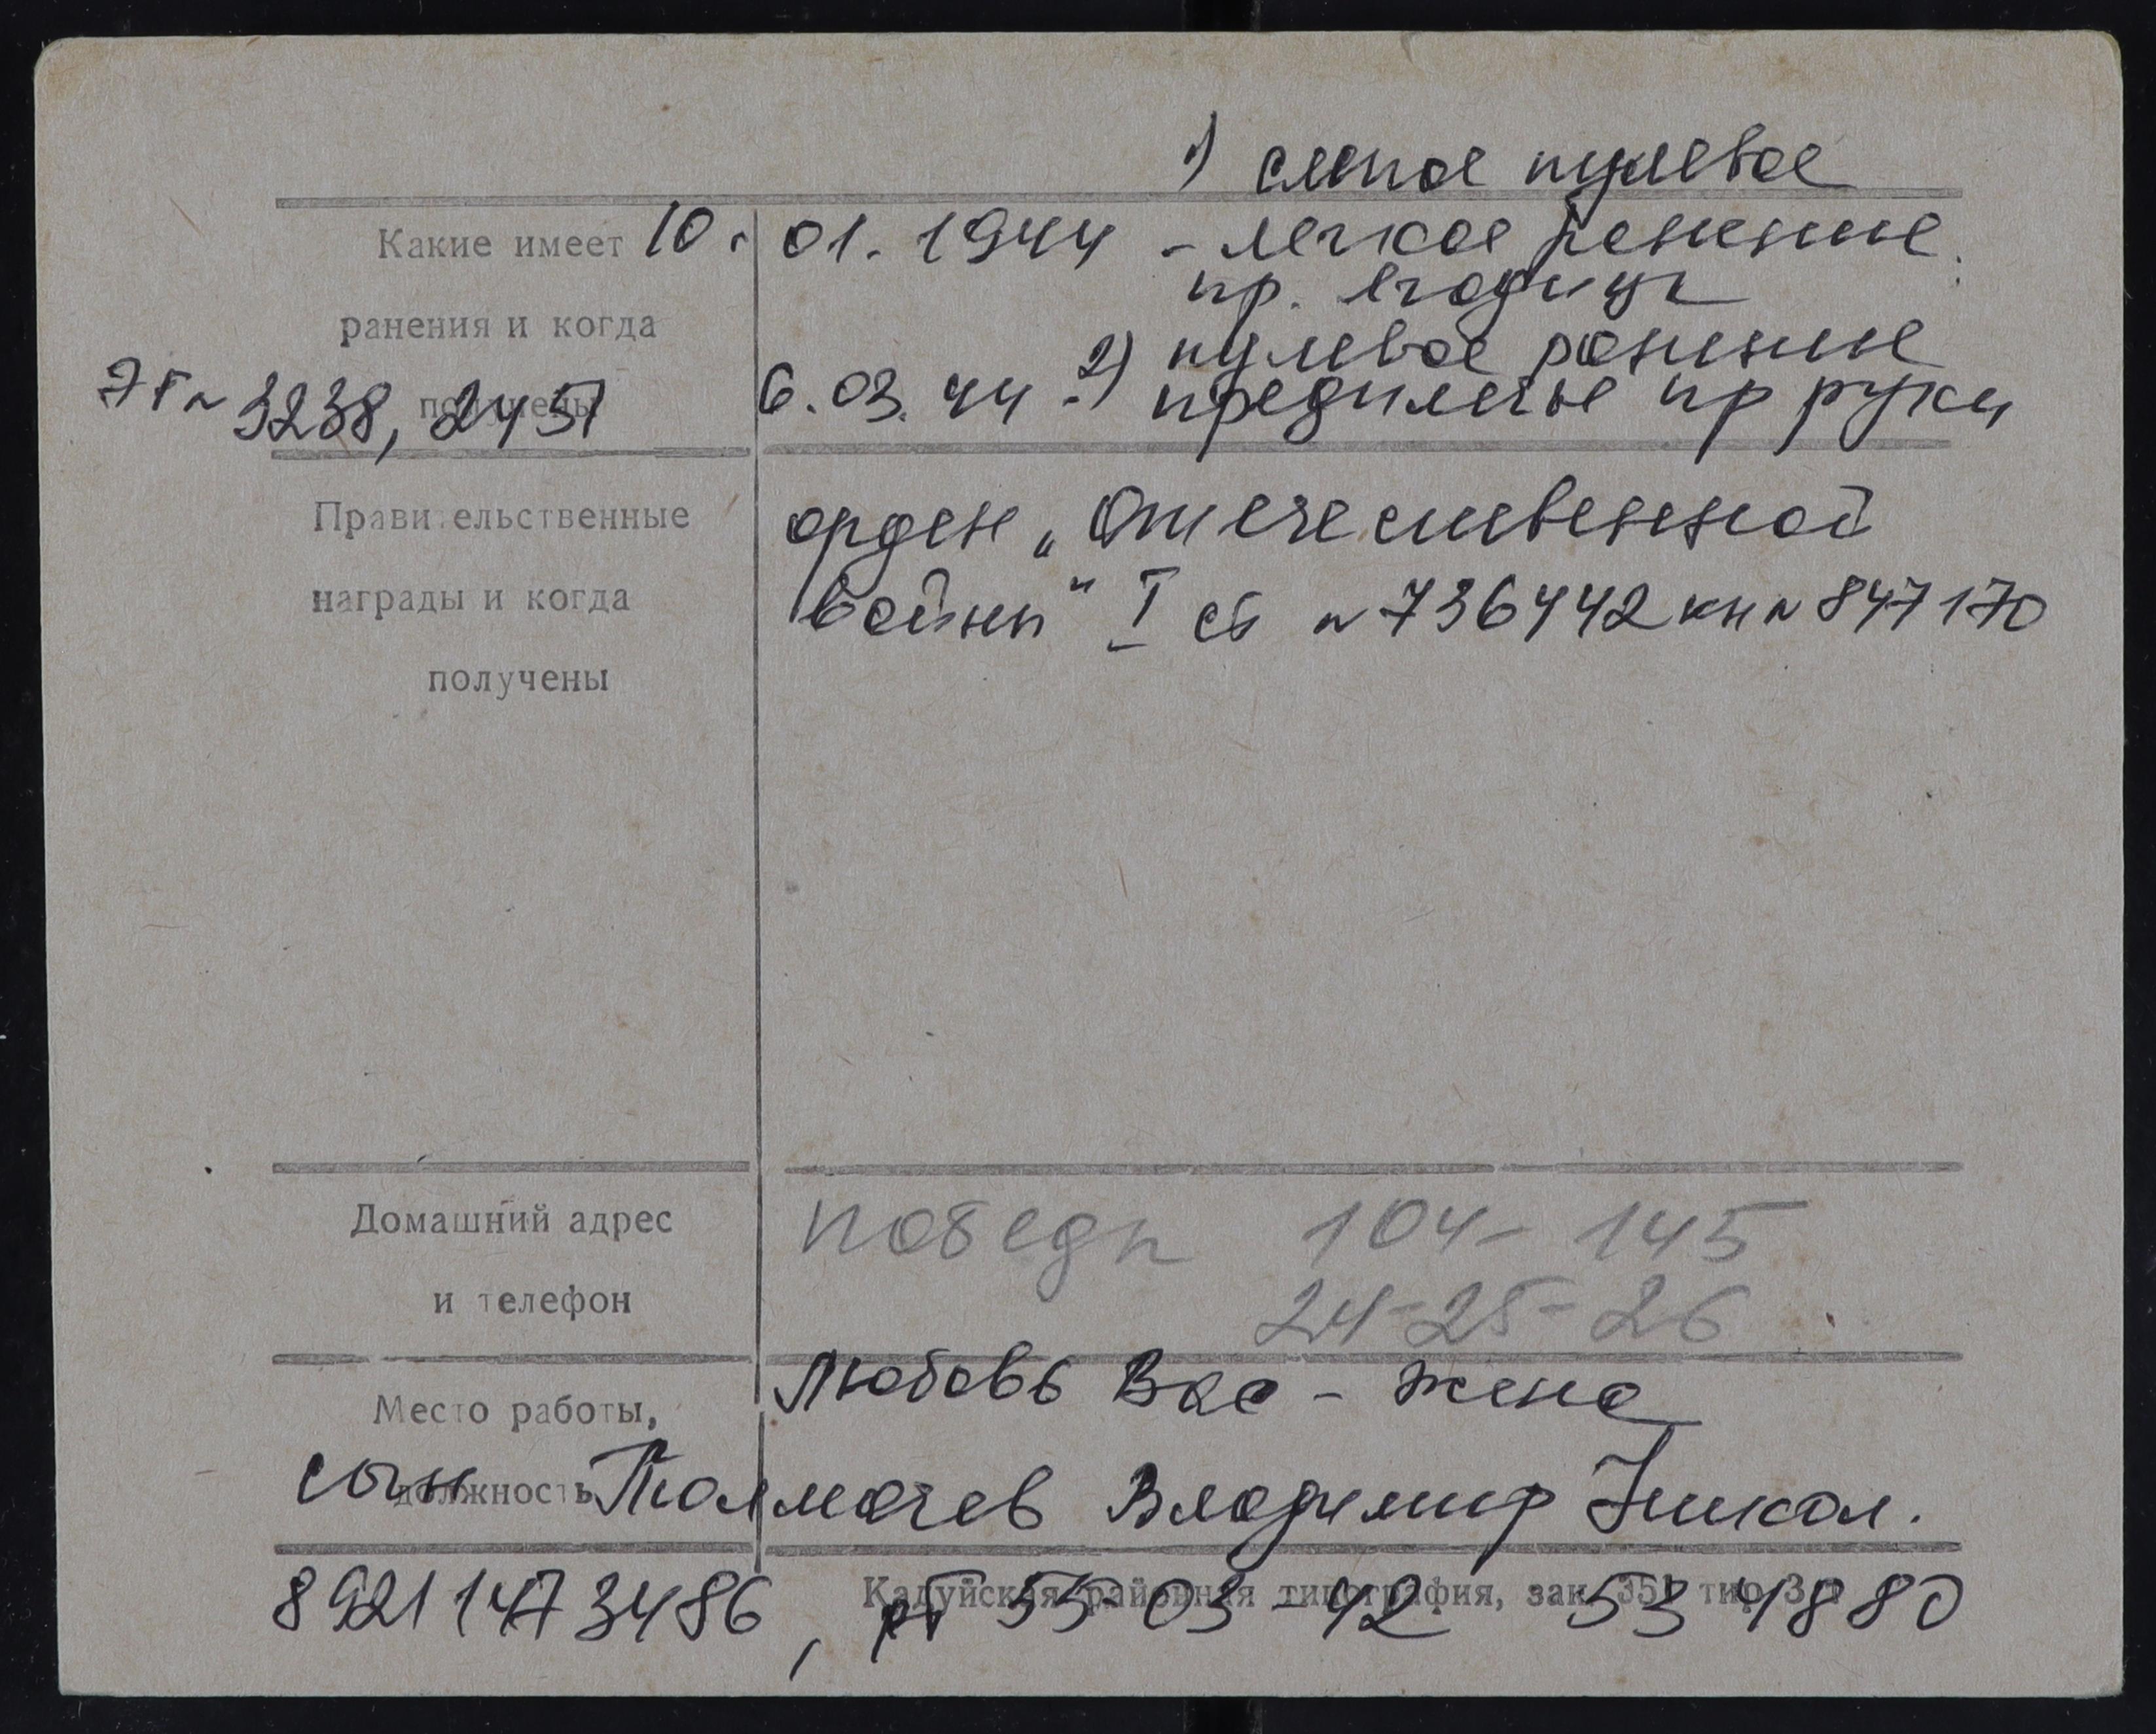 1) слепое пулевое
Какие имеет 10. 01. 1944 - легкое ранение
пр. ягодицы
ранения и когда 2) пулевое ранение
ЭГ № 3238, 2451 получены 6.03.44 - предплечье пр руки
Правительственные орден „Отечественной
награды и когда войны" I ст № 736442 кн № 847170
получены
Домашний адрес победы 104 - 145
и телефон 24-25-26
Место работы, Любовь Вас - жена
должность сын Толмачев Владимир Никол.
89211473486, рт 55-03-42 534880
Кадуйская районная типография, зак. 351 тир.